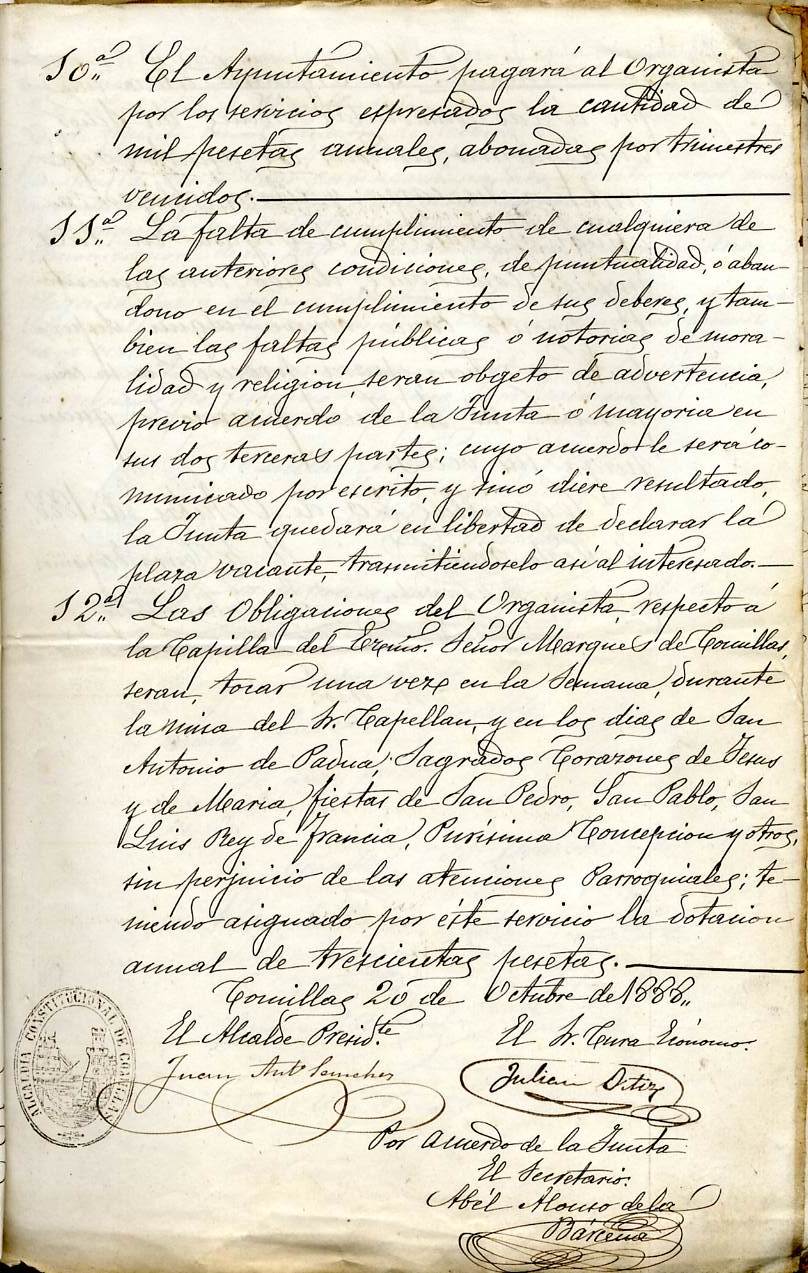 10.ª El Ayuntamiento pagará al Organista
por los servicios espresados la cantidad de
mil pesetas anuales, abonadas por trimestres
vencidos.
11.ª La falta de cumplimiento de cualquiera de
las anteriores condiciones, de puntualidad, ó aban-
dono en el cumplimiento de sus deberes, y tam-
bien las faltas públicas ó notorias de mora-
lidad y religion, seran obgeto de advertencia,
previo acuerdo de la Junta ó mayoria en
sus dos terceras partes; cuyo acuerdo le será co-
municado por escrito, y sinó diere resultado,
la Junta quedará en libertad de declarar la
plaza vacante, trasmitiendoselo asi al interesado.
12.ª Las Obligaciones del Organista, respecto á
la Capilla del Ezcmo. Señor Marques de Comillas,
seran, tocar una vez en la Semana, durante
la misa del Sr. Capellan, y en los dias de San
Antonio de Padua, Sagrados Corazones de Jesus
y de Maria, fiestas de San Pedro, San Pablo, San
Luis Rey de Francia, Purísima Concepcion y otros,
sin perjuicio de las atenciones Parroquiales; te-
niendo asignado por éste servicio la dotacion
anual de trescientas pesetas.
Comillas 20 de Octubre de 1888.
El Alcalde Presid.te El Sr. Cura Ecónomo.
Juan Ant.o Sanchez Julian Ortiz
ALCALDIA CONSTITUCIONAL DE COMILLAS
Por acuerdo de la Junta
El Secretario.
Abél Alonso de la
Bárcena